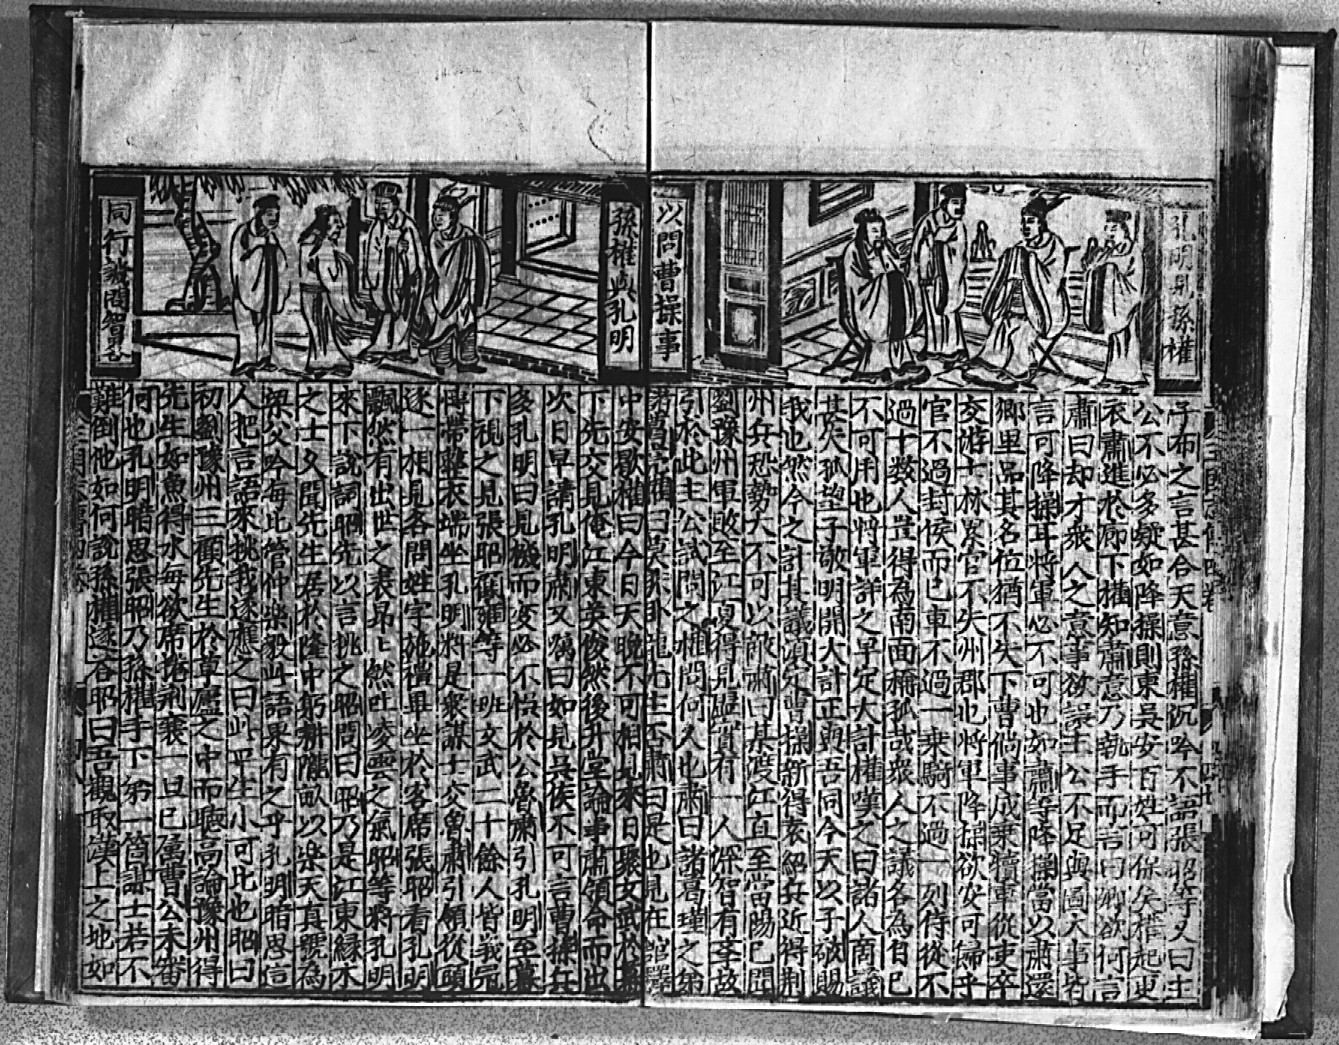 孔明見孫權
以問曹操事
子布之言甚合天意孫權沉吟不語張昭等又曰主
公不必多疑如降操則東吳安百姓可保矣權起更
衣肅進於廊下權知肅意乃執手而言曰卿欲何言
肅曰却才衆人之意事欲誤主公不足與圖大事皆
言可降操耳將軍必不可也如肅等降操當以肅還
鄉里品其名位猶不失下曹倘事成乗犢車從吏卒
交游士林累官不失州郡也將軍降操欲安可歸乎
官不過封侯而已車不過一乗騎不過一列侍從不
過十数人豈得為南面稱孤哉衆人之議各為自己
不可用也將軍詳之早定大計權嘆之曰諸人商議
甚失孤望子敬明開大計正與吾同今天以子敬賜
我也然今之計其議須定曹操新得袁紹兵近得荆
州兵恐勢大不可以敵肅曰某渡江直至當陽已聞
劉豫州軍敗至江夏得見臨賞有一人深智有峯故
引於此主公試問之權問何人也肅曰諸葛瑾之弟
諸葛亮權曰莫非卧龍先生否肅曰是也見在舘驛
孫權與孔明
同行議問智畧
中安歇權曰今日天晚不可相見來日聚文武於
下先交見俺江東英俊然後升堂論事肅領命而出
次日早請孔明肅又囑曰如見吳侯不可言曹操兵
多孔明曰見機而変必不悞於公魯肅引孔明至幕
下視之見張昭顧雍等一班文武二十餘人皆義冠
博帶整衣端坐孔明料是衆謀士交魯肅引領從頭
逐一相見各問姓字施禮畢坐於客席張昭看孔明
飄然有出世之表昻〻然吐凌雲之氣昭等料孔明
來下說詞昭先以言挑之昭問曰昭乃是江東緑木
之士久聞先生居於隆中躬耕隴畝以樂天真號為
梁父吟每比管仲樂毅此語果有之乎孔明暗思信
人把言語來挑我遂應之曰此平生小可比也昭曰
初劉豫州三顧先生於草廬之中而聴高論豫州得
先生如魚得水每欲席捲荆襄一旦已属曹公未審
何也孔明暗思張昭乃孫權手下第一箇謀士若不
難倒他如何說孫權遂答昭曰吾觀取漢上之地如